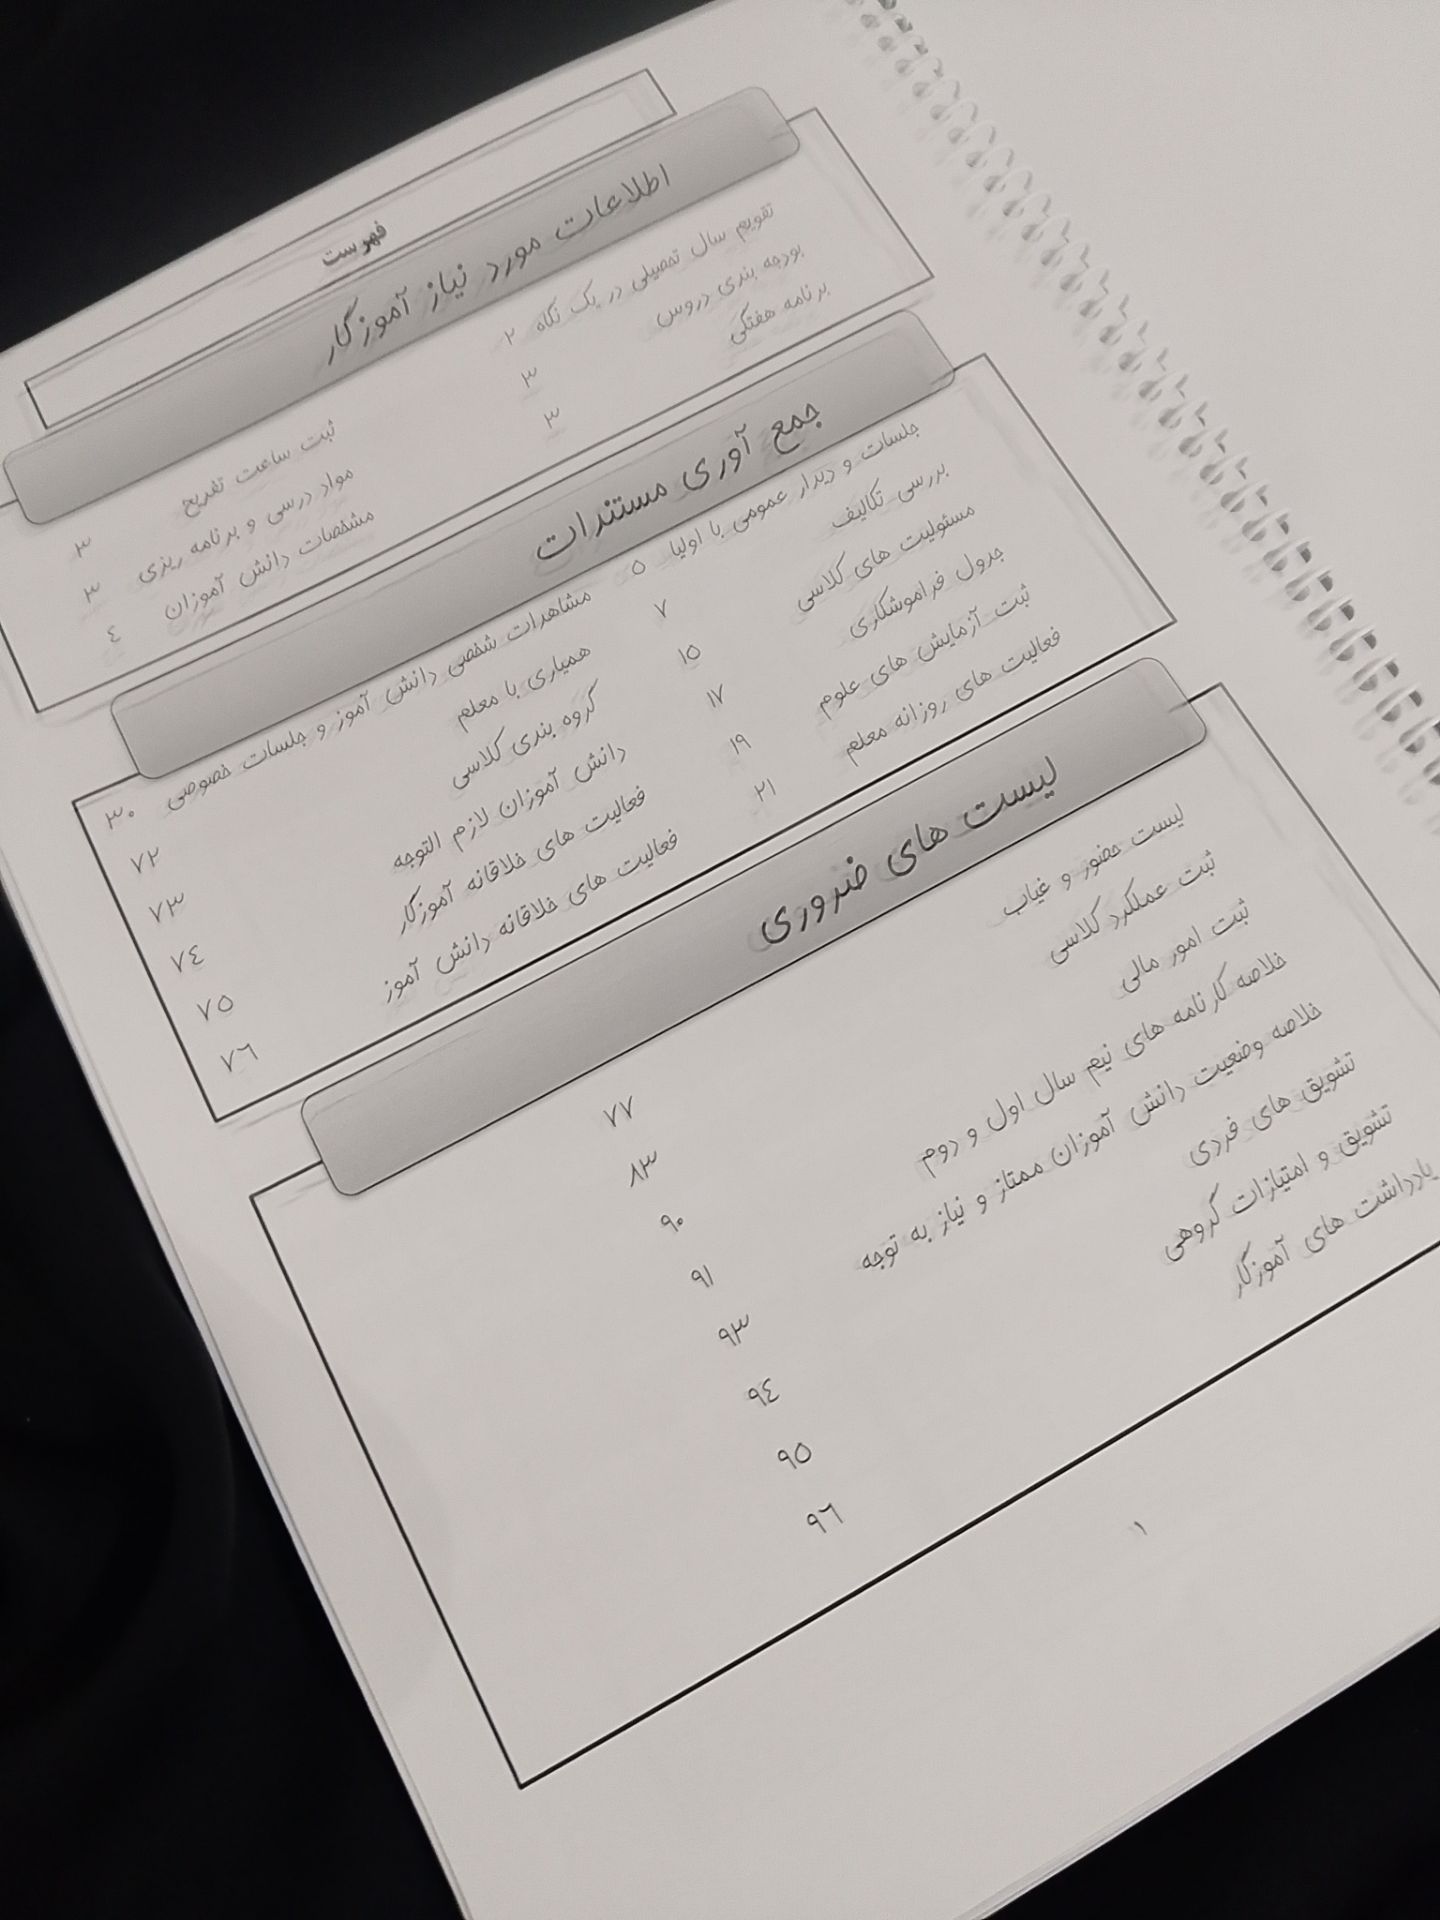 فهرست
اطلاعات مورد نیاز آموزگار
تقویم سال تحصیلی در یک نگاه ۲
بودجه بندی دروس ۳
برنامه هفتگی ۳
ثبت ساعت تفریح ۳
مواد درسی و برنامه ریزی ۳
مشخصات دانش آموزان ٤
جمع آوری مستندات
جلسات و دیدار عمومی با اولیا ۵
بررسی تکالیف ۷
مسئولیت های کلاسی ۱۵
جدول فراموشکاری ۱۷
ثبت آزمایش های علوم ۱۹
فعالیت های روزانه معلم ۲۱
مشاهدات شخصی دانش آموز و جلسات خصوصی ۳۰
همیاری با معلم ۷۲
گروه بندی کلاسی ۷۳
دانش آموزان لازم التوجه ۷٤
فعالیت های خلاقانه آموزگار ۷۵
فعالیت های خلاقانه دانش آموز ۷٦
لیست های ضروری
لیست حضور و غیاب ۷۷
ثبت عملکرد کلاسی ۸۳
ثبت امور مالی ۹۰
خلاصه کارنامه های نیم سال اول و دوم ۹۱
خلاصه وضعیت دانش آموزان ممتاز و نیاز به توجه ۹۳
تشویق های فردی ۹٤
تشویق و امتیازات گروهی ۹۵
یادداشت های آموزگار ۹٦
۱